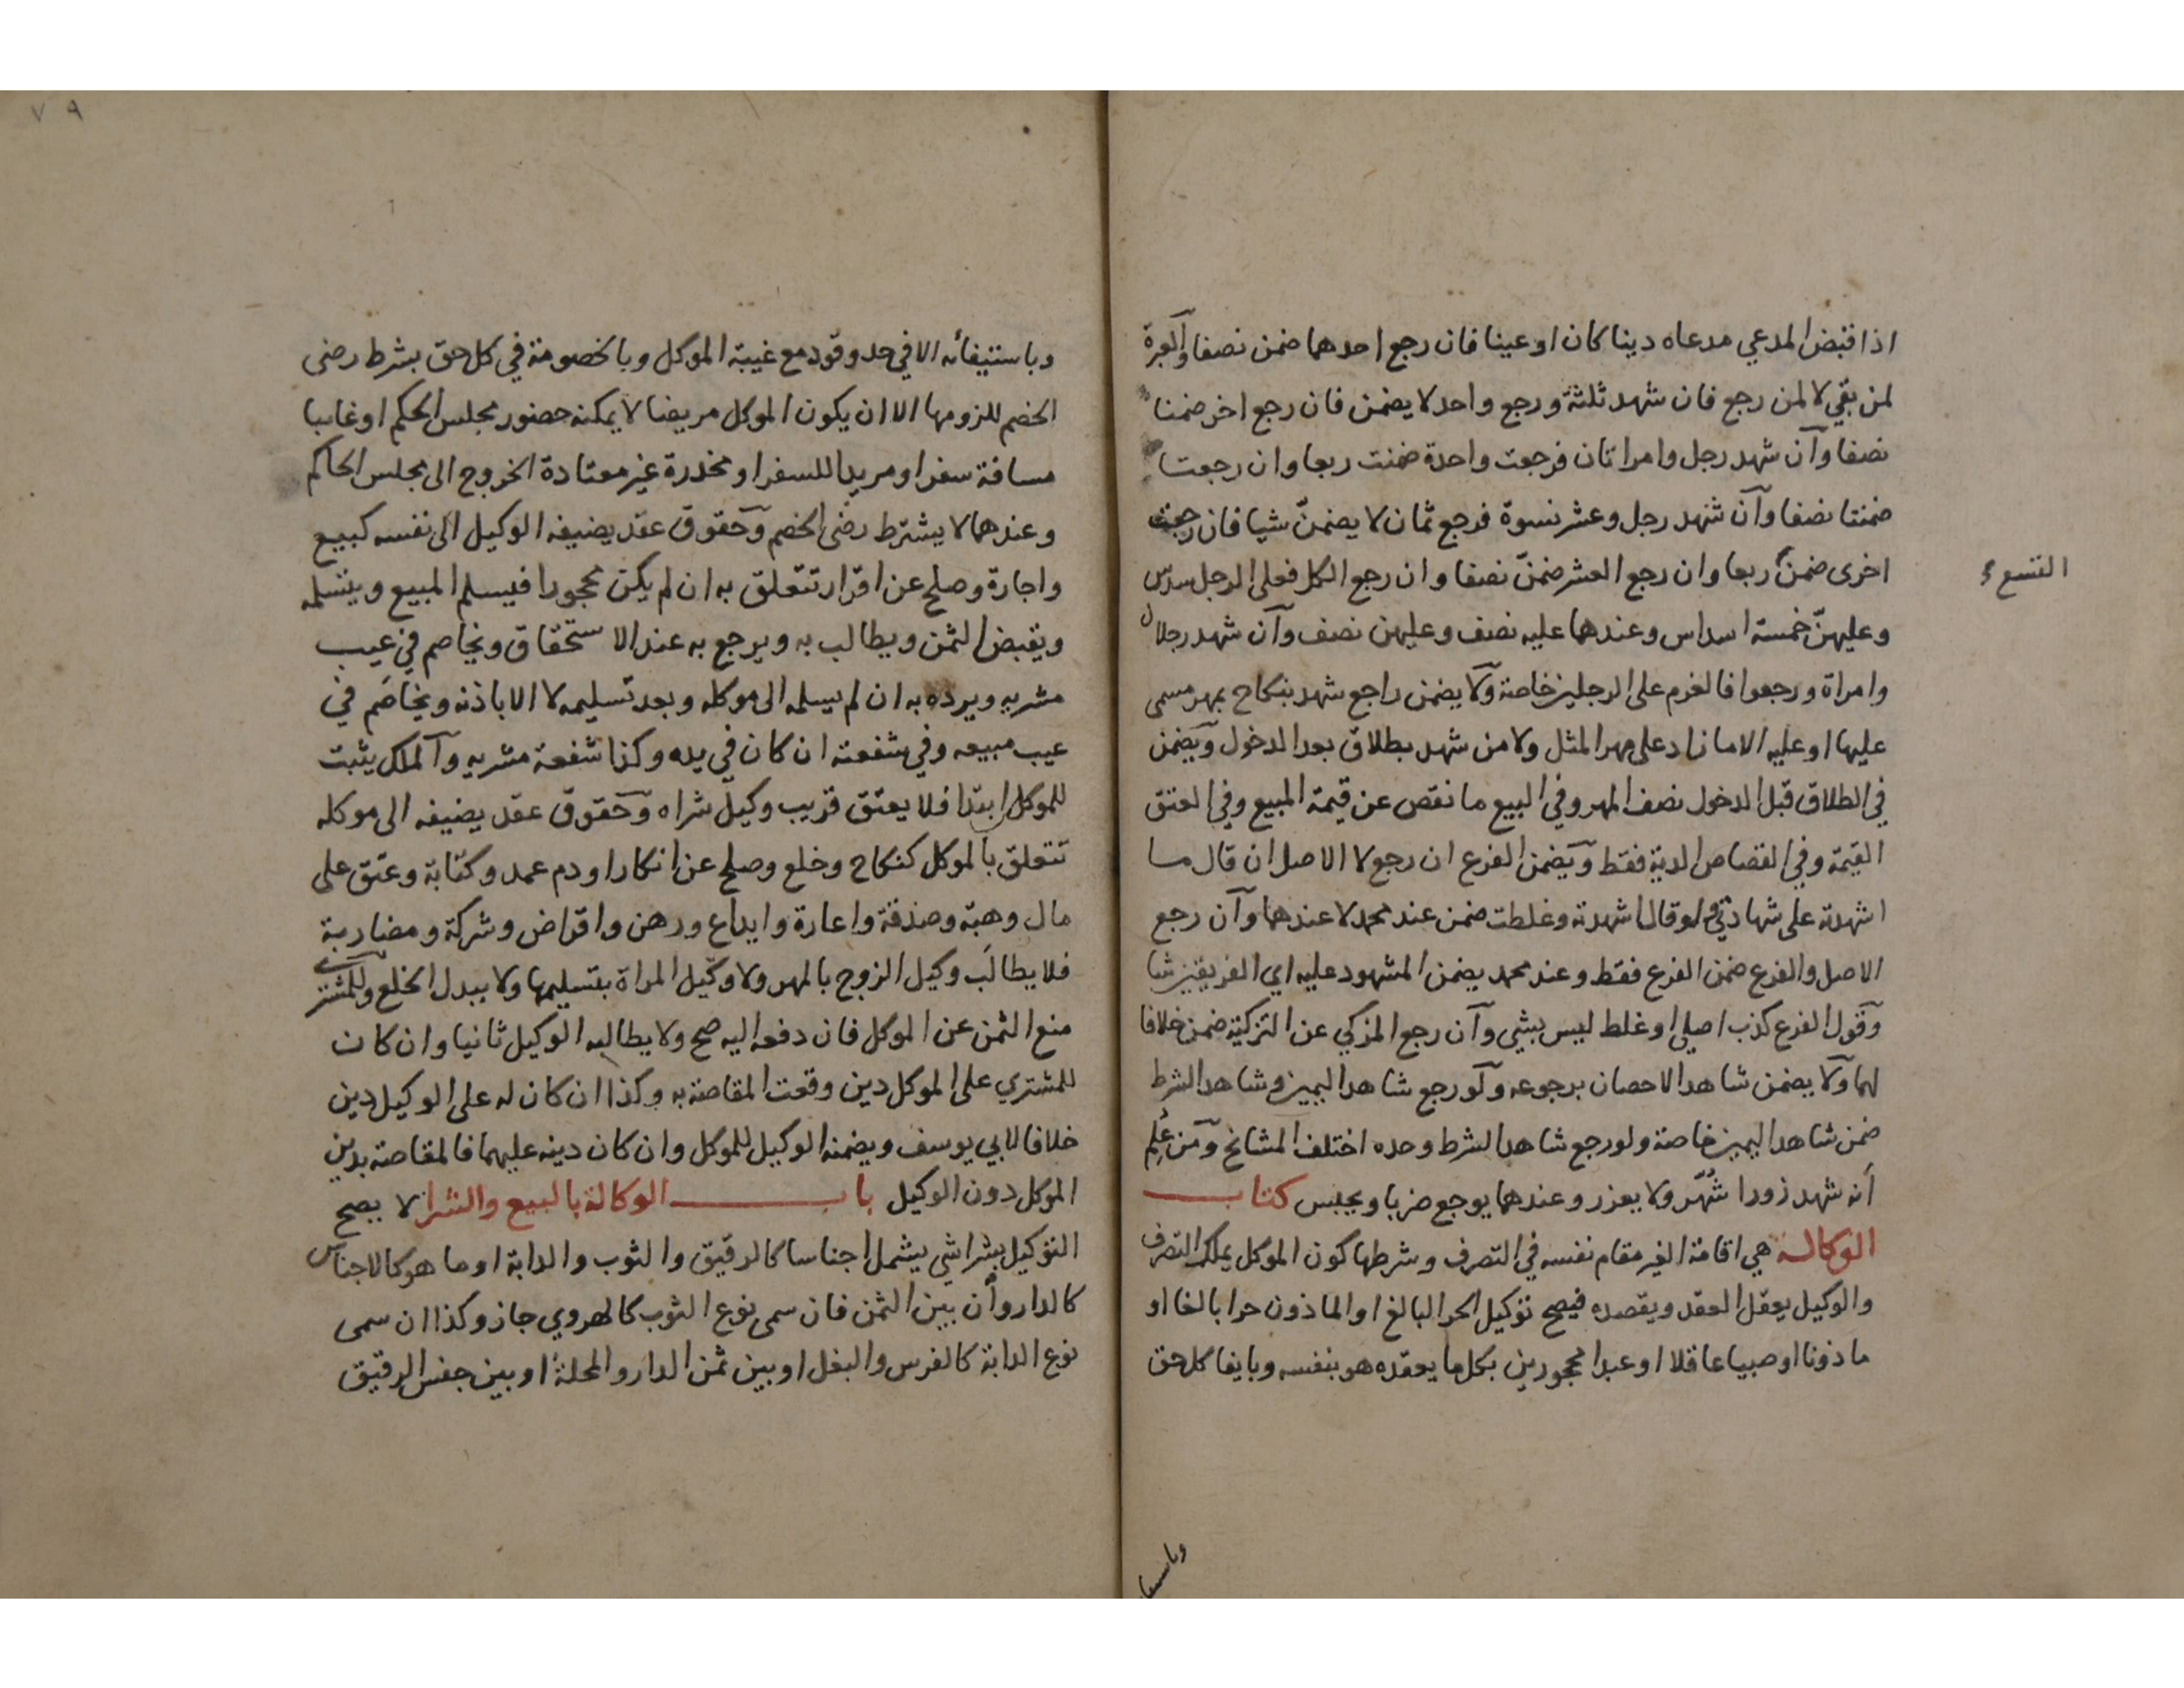 اذا قبض المدعي مدعاه دينا كان او عينا فان رجع احدهما ضمن نصفا والعبرة
لمن بقي لا لمن رجع فان شهد ثلثة ورجع واحد لا يضمن فان رجع اخر ضمنا
نصفا وان شهد رجل وامراتان فرجعت واحدة ضمنت ربعا وان رجعتا
ضمنتا نصفا وان شهد رجل وعشر نسوة فرجع ثمان لا يضمنّ شيا فان رجعت
اخرى ضمن التسع ربعا وان رجع العشر ضمنّ نصفا وان رجع الكل فعلى الرجل سدس
وعليهنّ خمسة اسداس وعندهما عليه نصف وعليهن نصف وان شهد رجلان
وامراة ورجعوا فالغرم على الرجلين خاصة ولا يضمن راجع شهد بنكاح بمهر مسمى
عليها او عليه الا ما زاد على مهر المثل ولا من شهد بطلاق بعد الدخول ويضمن
في الطلاق قبل الدخول نصف المهر وفي البيع ما نقص عن قيمة المبيع وفي العتق
القيمة وفي القصاص الدية فقط ويضمن الفرع ان رجع لا الاصل ان قال ما
اشهدته على شهادتي ولو قال اشهدته وغلطت ضمن عند محمد لا عندهما وان رجع
الاصل والفرع ضمن الفرع فقط وعند محمد يضمن المشهود عليه اي الفريقين شا
وقول الفرع كذب اصلي او غلط ليس بشي وان رجع المزكي عن التزكية ضمن خلافا
لهما ولا يضمن شاهد الاحصان برجوعه ولو رجع شاهدا اليمين وشاهدا الشرط
ضمن شاهدا اليمين خاصة ولو رجع شاهدا الشرط وحده اختلف المشايخ ومن عُلِم
أنه شهد زورا شُهّر ولا يعزر وعندهما يوجع ضربا ويحبس كتاب
الوكالة هي اقامة الغير مقام نفسه في التصرف وشرطها كون الموكل يملك التصرف
والوكيل يعقل العقد ويقصده فيصح توكيل الحر البالغ او الماذون حرا بالغا او
ماذونا او صبيا عاقلا او عبدا محجورين بكل ما يعقده هو بنفسه وبايفا كل حق
وباستيفا
وباستيفائه الا في حد وقود مع غيبة الموكل وبالخصومة في كل حق بشرط رضى
الخصم للزومها الا ان يكون الموكل مريضا لا يمكنه حضور مجلس الحكم او غايبا
مسافة سفر او مريدا للسفر او مخدرة غير معتادة الخروج الى مجلس الحاكم
وعندهما لا يشترط رضى الخصم وحقوق عقد يضيفه الوكيل الى نفسه كبيع
واجارة وصلح عن اقرار تتعلق به ان لم يكن محجورا فيسلم المبيع ويتسلمه
ويقبض الثمن ويطالب به ويرجع به عند الاستحقاق ويخاصم في عيب
مشريه ويرده به ان لم يسلمه الى موكله وبعد تسليمه لا الا باذنه ويخاصَم في
عيب مبيعه وفي شفعته ان كان في يده وكذا شفعة مشريه والملك يثبت
للموكل ابتدا فلا يعتق قريب وكيل شراه وحقوق عقد يضيفه الى موكله
تتعلق بالموكل كنكاح وخلع وصلح عن انكار او دم عمد وكتابة وعتق على
مال وهبة وصدقة واعارة وايداع ورهن واقراض وشركة ومضاربة
فلا يطالَب وكيل الزوج بالمهر ولا وكيل المراة بتسليمها ولا ببدل الخلع وللمشتري
منع الثمن عن الموكل فان دفعه اليه صح ولا يطالبه الوكيل ثانيا وان كان
للمشتري على الموكل دين وقعت المقاصة به وكذا ان كان له على الوكيل دين
خلافا لابي يوسف ويضمنه الوكيل للموكل وان كان دينه عليهما فالمقاصة بدين
الموكل دون الوكيل باب الوكالة بالبيع والشرا لا يصح
التوكيل بشرا شي يشمل اجناسا كالرقيق والثوب والدابة او ما هو كالاجناس
كالدار وأن بين الثمن فان سمى نوع الثوب كالهروي جاز وكذا ان سمى
نوع الدابة كالفرس والبغل او بين ثمن الدار والمحلة او بين جنس الرقيق